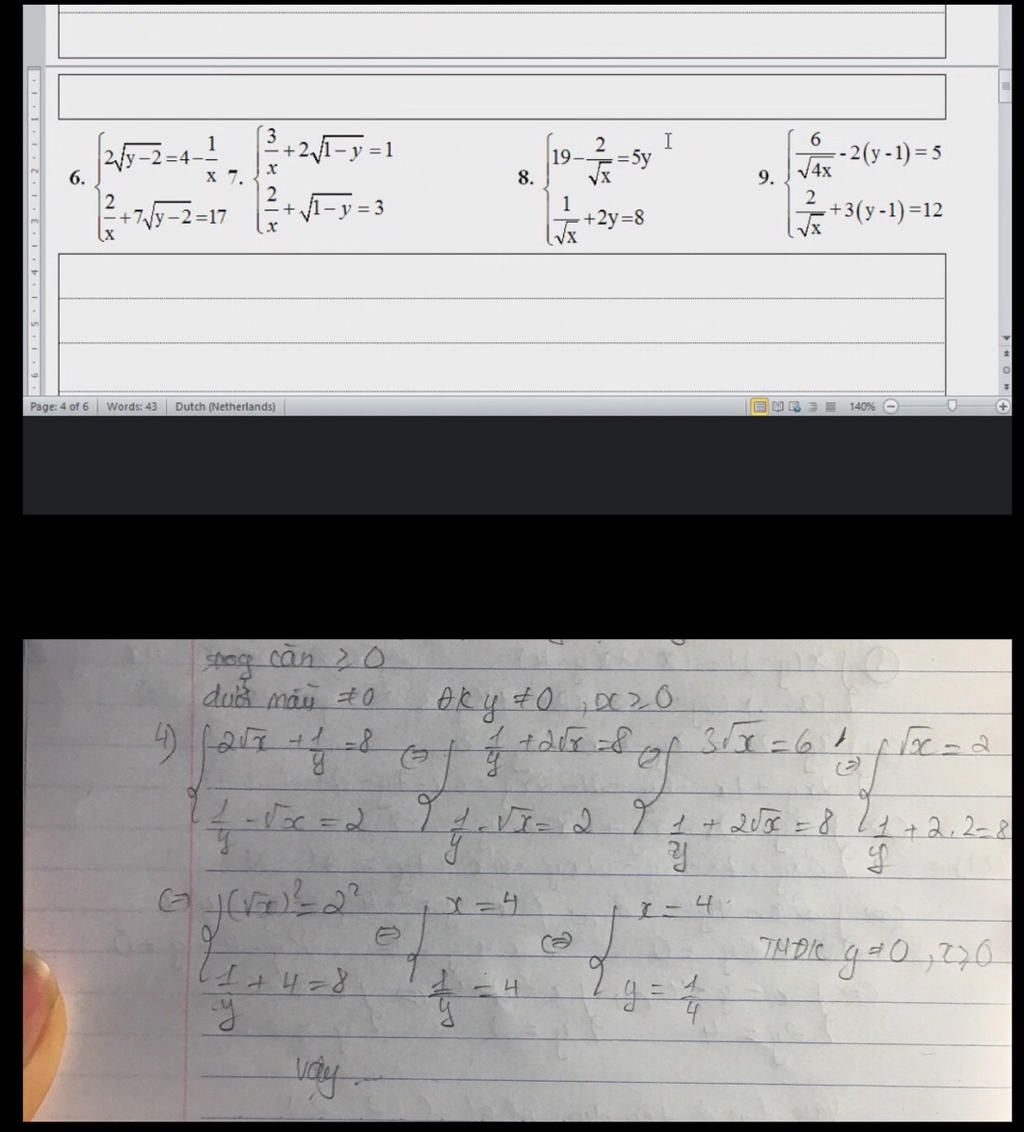 6. { 2√(y-2) = 4 - 1/x ; 2/x + 7√(y-2) = 17 7. { 3/x + 2√(1-y) = 1 ; 2/x + √(1-y) = 3 8. { 19 - 2/√x = 5y ; 1/√x + 2y = 8 9. { 6/√(4x) - 2(y-1) = 5 ; 2/√x + 3(y-1) = 12
Page: 4 of 6 Words: 43 Dutch (Netherlands) 140%
căn ≥ 0
dưới mẫu ≠ 0 ĐK y ≠ 0, x ≥ 0
4) { 2√x + 1/y = 8 ⇔ { 1/y + 2√x = 8 ⇔ { 3√x = 6 ⇔ { √x = 2
1/y - √x = 2 1/y - √x = 2 1/y + 2√x = 8 1/y + 2.2 = 8
⇔ { (√x)² = 2² ⇔ { x = 4 ⇔ { x = 4
1/y + 4 = 8 1/y = 4 y = 1/4 TMĐK y ≠ 0, x ≥ 0
Vậy ...